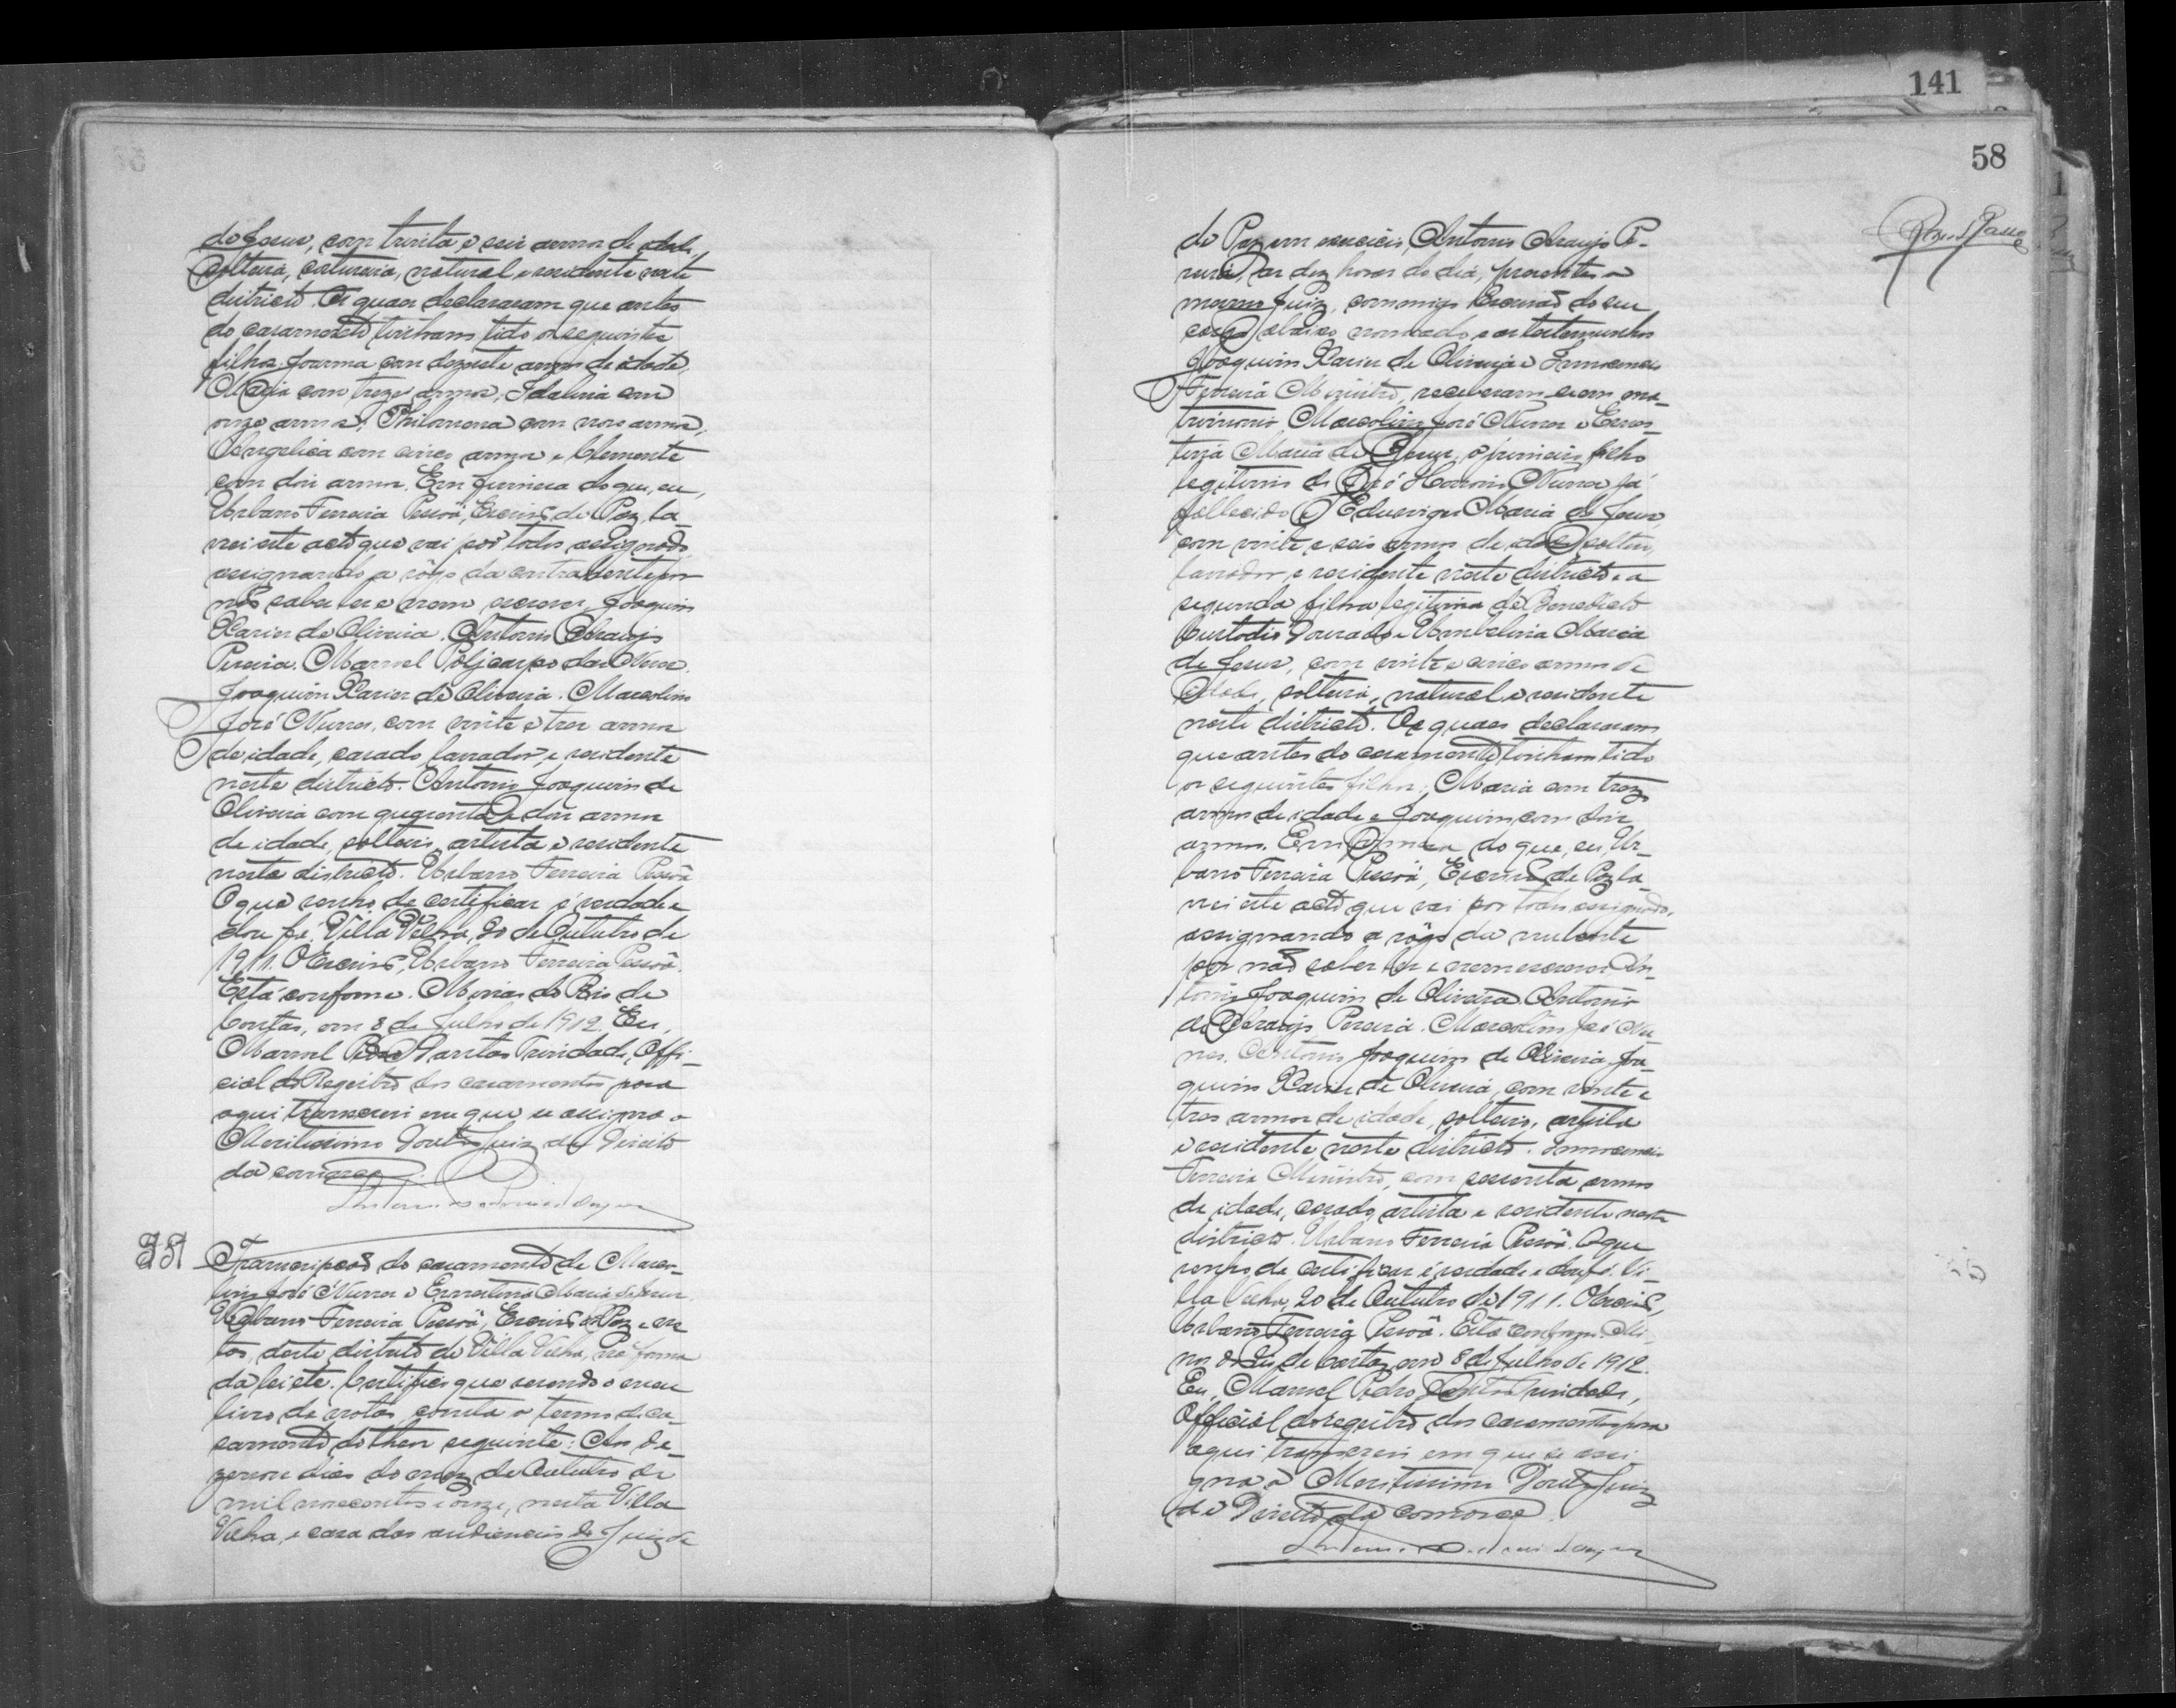 de Jesus, com trinta e seis annos de idade,
solteira, costureira, natural e residente neste
districto. Os quaes declararam que antes
do casamento tinham tido os seguintes
filhos: Joanna com dezesete annos de idade,
Maria com treze annos, Idalina com
onze annos, Philomena com nove annos,
Angelica com cinco annos e Clemente
com dois annos. Em firmesa do que, eu,
Urbano Ferreira Pessôa, Escrivão de Paz, la-
vrei este acto que vai por todos assignado,
assignando a rôgo da contrahente por
não saber ler e nem escrever Joaquim
Xavier de Oliveira. Antonio Araujo
Pereira. Manoel Polycarpo das Neves.
Joaquim Xavier de Oliveira. Marcolino
José Nunes, com vinte e tres annos
de idade, casado, lavrador, e residente
neste districto. Antonio Joaquim de
Oliveira com quarenta e dois annos
de idade, solteiro, artista e residente
neste districto. Urbano Ferreira Pessôa
O que venho de certificar é verdade e
dou fé. Villa Velha, 20 de Outubro de
1911. O Escrivão, Urbano Ferreira Pessôa.
Está conforme. Minas do Rio de
Contas, em 8 de Julho de 1912. Eu,
Manoel Pedro Santos Trindade, Offi-
cial do Registro dos casamentos para
aqui transcrevi em que se assigna o
Meritissimo Doutor Juiz de Direito
da comarca.
Transcripção do casamento de Marco-
lino José Nunes e Ernestina Maria de Jesus
Urbano Ferreira Pessôa, Escrivão de Paz e no
tas, deste districto de Villa Velha, na forma
da lei etc. Certifico que revendo o meu
livro de notas, consta o termo de ca-
samento do theor seguinte: Aos de-
zenove dias do mez de Outubro de
mil novecentos e onze, nesta Villa
Velha, e casa das audiencias do Juiz de
141
58
de Paz em exercicio, Antonio Araujo Pe-
reira, as dez horas do dia, presentes o
mesmo Juiz, commigo Escrivão do seu
cargo abaixo nomeado, e as testemunhas
Joaquim Xavier de Oliveira e Innocencio
Ferreira Ministro, receberam-se em ma-
trimonio Marcolino José Nunes e Ernes-
tina Maria de Jesus, o primeiro filho
legitimo de José Honorio Nunes já
fallecido e Eduwiges Maria de Jesus,
com vinte e seis annos de idade, solteiro,
lavrador e residente neste districto e a
segunda filha legitima de Benedicto
Custodio Dourado e Umbelina Maria
de Jesus, com vinte e cinco annos de
idade, solteira, natural e residente
neste districto. Os quaes declararam
que antes do casamento tinham tido
os seguintes filhos: Maria com tres
annos de idade e Joaquim com dois
annos. Em firmesa do que, eu, Ur-
bano Ferreira Pessôa, Escrivão de Paz la-
vrei este acto que vai por todos assignado,
assignando a rôgo da nubente
por não saber ler e nem escrever An-
tonio Joaquim de Oliveira. Antonio
de Araujo Pereira. Marcolino José Nu-
nes. Antonio Joaquim de Oliveira. Joa-
quim Xavier de Oliveira, com vinte e
tres annos de idade, solteiro, artista
e residente neste districto. Innocencio
Ferreira Ministro, com sessenta annos
de idade, casado, artista e residente neste
districto. Urbano Ferreira Pessôa. O que
venho de certificar é verdade e dou fé. Vi-
lla Velha, 20 de Outubro de 1911. O Escrivão,
Urbano Ferreira Pessôa. Está conforme. Mi-
nas do Rio de Contas, em 8 de Julho de 1912.
Eu, Manoel Pedro Santos Trindade,
Official do registro dos casamentos para
aqui transcrevi em que se assi-
gna o Meritissimo Doutor Juiz
de Direito da comarca.